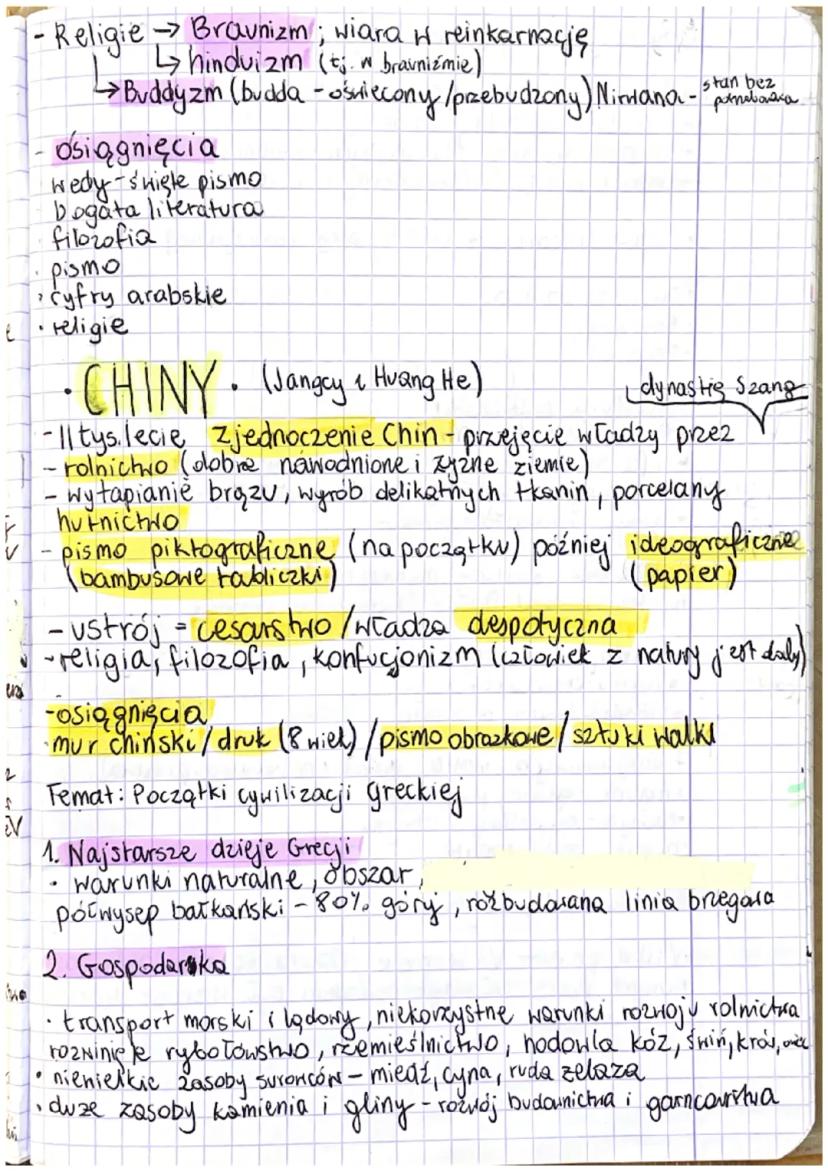 - Religie → Bravnizm ; wiara w reinkarnację
↳ hinduizm (tj. w bravniźmie)
→ Buddyzm (budda - oświecony/przebudzony) Nirwana - stan bez
- osiągnięcia
wedy - święte pismo
bogata literatura
filozofia
· pismo
· cyfry arabskie
· religie
· CHINY · (Jangcy i Huang He)
dynastię Szang
- II tys. lecie zjednoczenie Chin - przejęcie władzy przez
- rolnictwo (dobrze nawodnione i żyzne ziemie)
- wytapianie brązu, wyrób delikatnych tkanin, porcelany
hutnictwo
- pismo piktograficzne (na początku) później ideograficzne
(bambusowe tabliczki) (papier)
- ustrój = cesarstwo / władza despotyczna
- religia, filozofia, konfucjonizm (człowiek z natury jest)
- osiągnięcia
· mur chiński / druk (8 wiek) / pismo obrazkowe / sztuki walki
Temat: Początki cywilizacji greckiej
1. Najstarsze dzieje Grecji
· warunki naturalne, obszar,
półwysep bałkański - 80% góry, rozbudowana linia brzegowa
2. Gospodarka
· transport morski i lądowy, niekorzystne warunki rozwoju rolnictwa
rozwinięte rybołówstwo, rzemieślnictwo, hodowla kóz, świń, krów, owiec
· niewielkie zasoby surowców - miedź, cyna, ruda żelaza
· duże zasoby kamienia i gliny - rozwój budownictwa i garncarstwa